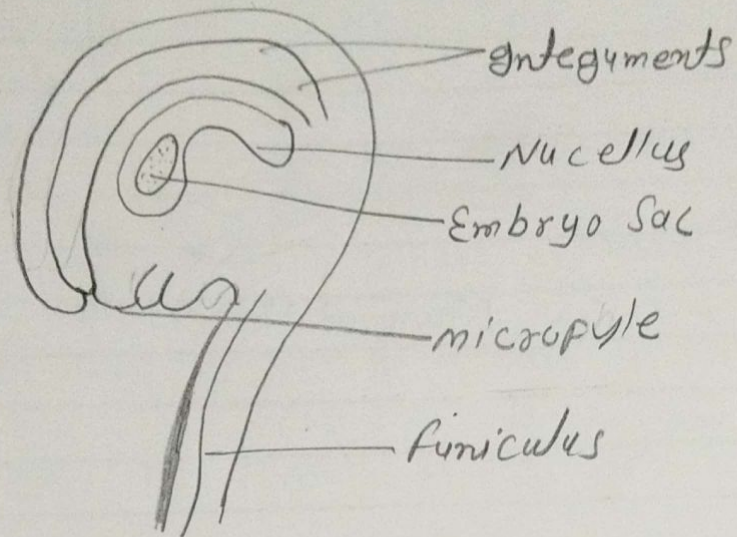 Integuments
Nucellus
Embryo Sac
micropyle
funiculus